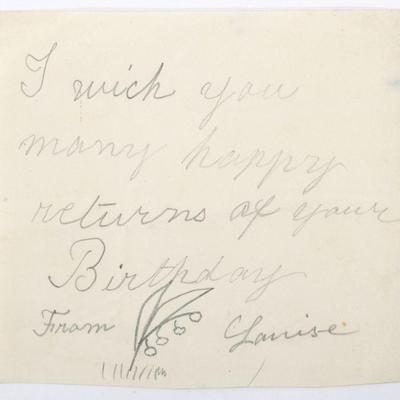 I wich you
many happy
returns of your
Birthday
From Louise.